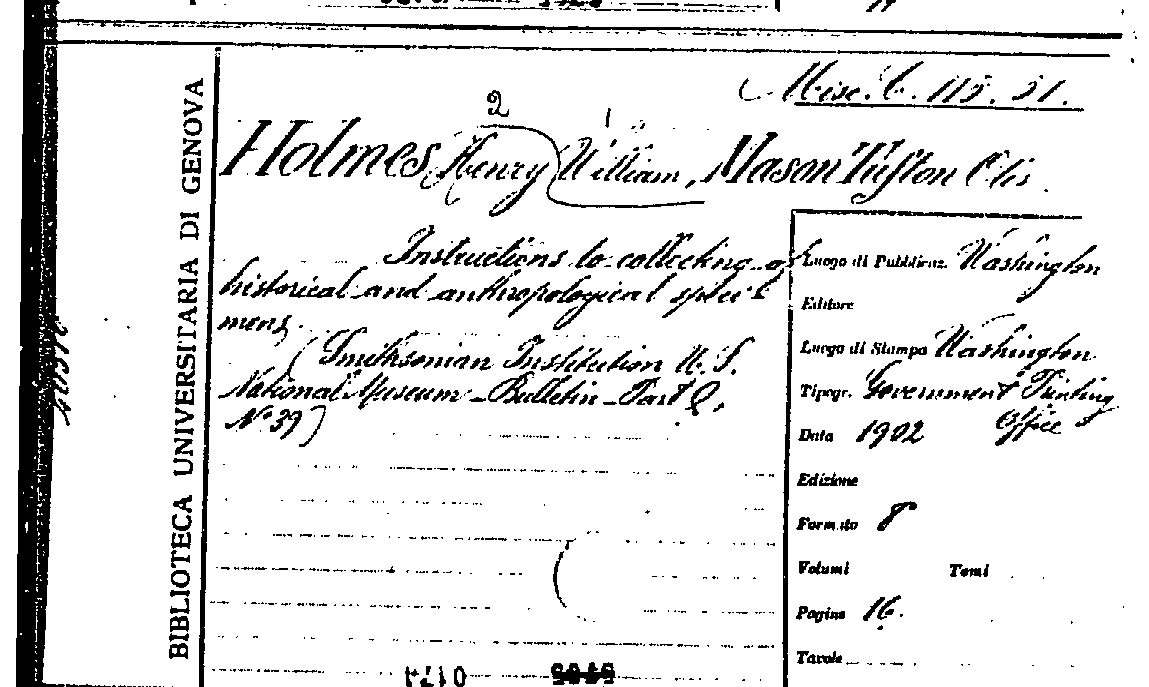 Misc. C. 115. 31.
2 1
Holmes Henry William, Mason Tufton Otis
Instructions to collecting of
historical and anthropological speci
mens.
(Smithsonian Institution U. S.
National Museum - Bulletin - Part Q,
N° 39)
BIBLIOTECA UNIVERSITARIA DI GENOVA
Luogo di Pubblicaz. Washington
Editore
Luogo di Stampa Washington
Tipogr. Government Printing
Office
Data 1902
Edizione
Formato 8
Volumi Tomi
Pagine 16.
Tavole